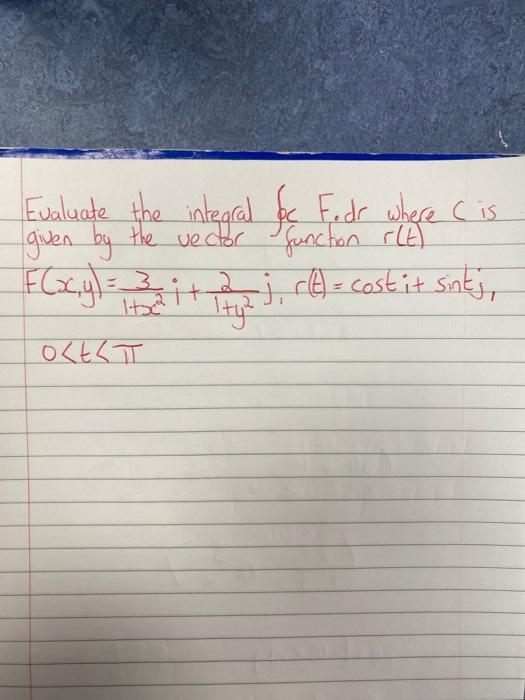 Evaluate the integral ∮c F.dr where C is
given by the vector function r(t)
F(x,y) = 3/(1+x²) i + 2/(1+y²) j, r(t) = cost i + sint j,
0<t<π